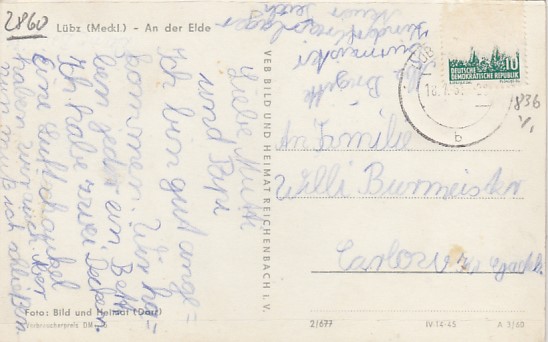 2860
Lübz (Meckl.) - An der Elde
Liebe Mutti
und Papi
Ich bin gut ange=
kommen. Wir ha=
ben jeder ein Bett
Ich habe zwei Decken.
Eine Luftschaukel
haben wir auch hier
nun muß ich schließen
Foto: Bild und Heimat (Darr)
Verbraucherpreis DM
VEB BILD UND HEIMAT REICHENBACH I. V.
Brigitt
Burmeister
DEUTSCHE
DEMOKRATISCHE REPUBLIK
10
18.7.
b
1836
An Familie
Willi Burmeister
Carlow
2/677
IV-14-45
A 3/60